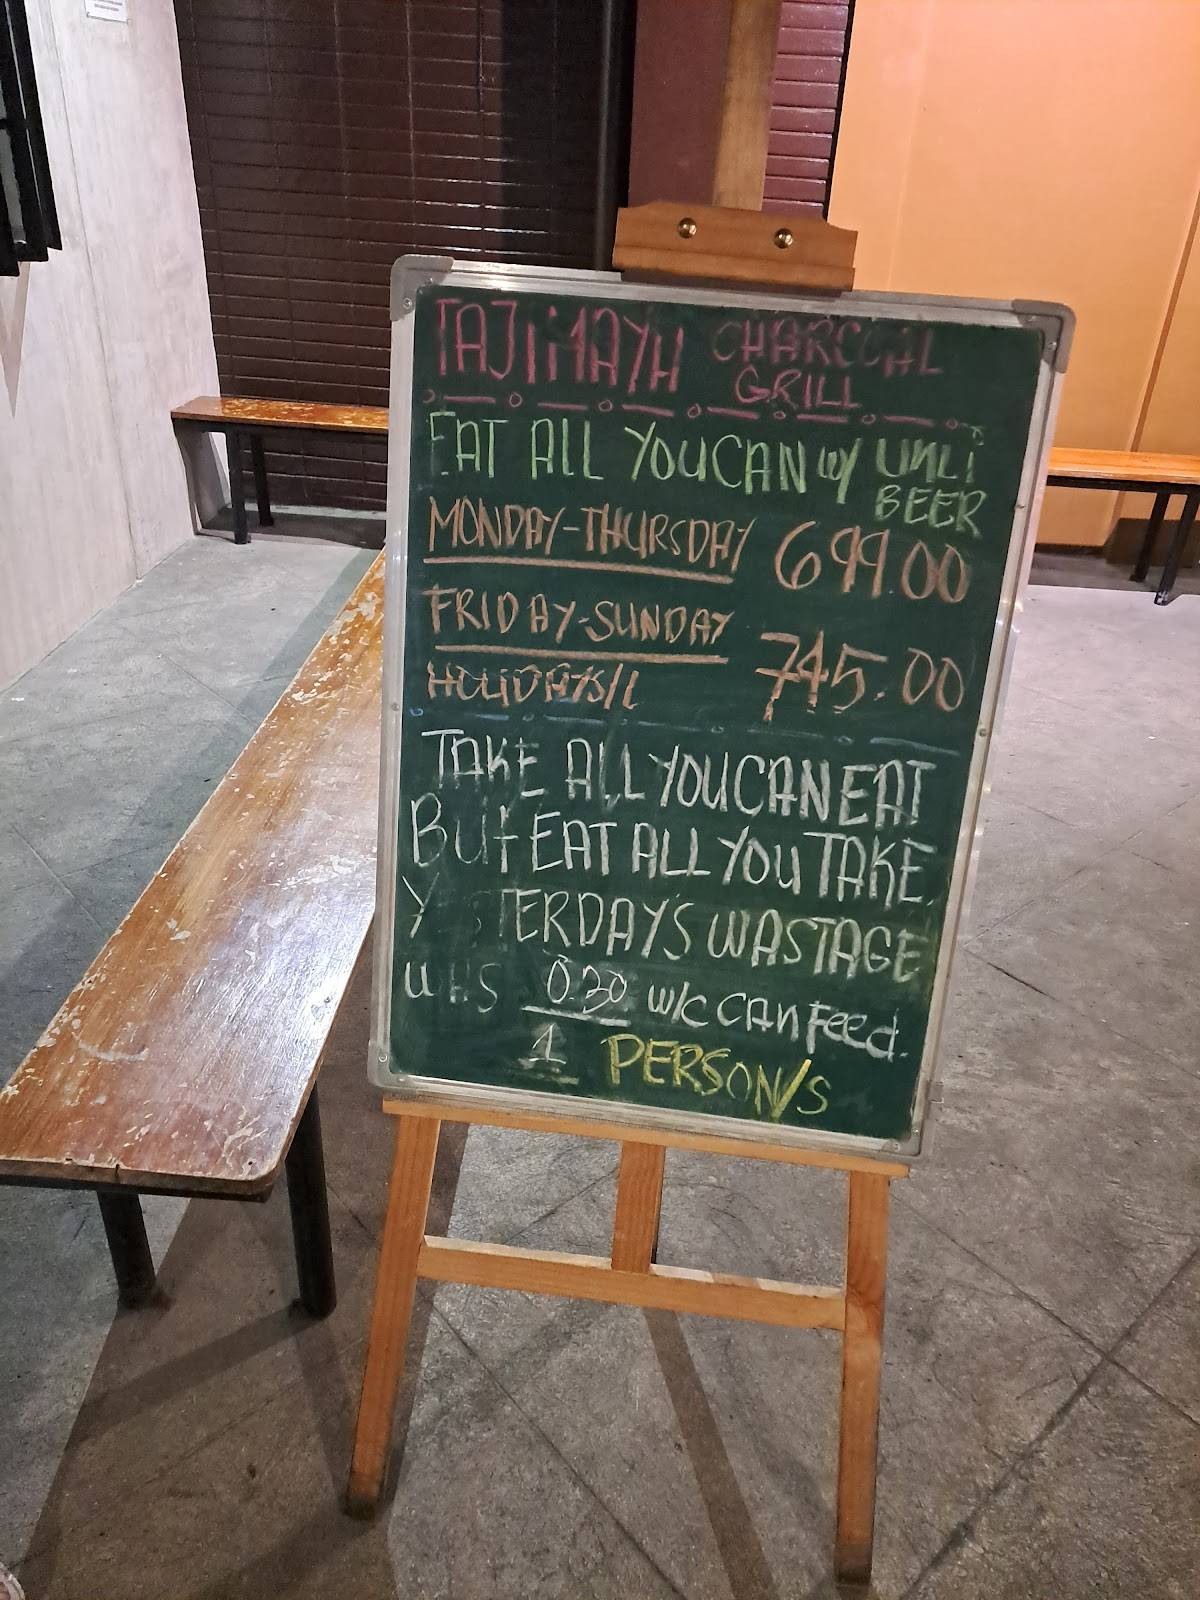 TAJIMAYA CHARCOAL
GRILL
EAT ALL YOU CAN w/ UNLI
BEER
MONDAY-THURSDAY 699.00
FRIDAY-SUNDAY
HOLIDAYS/L 745.00
TAKE ALL YOU CAN EAT
BUT EAT ALL YOU TAKE.
YESTERDAY'S WASTAGE
WAS 0.20 w/c CAN FEED.
1 PERSON/S